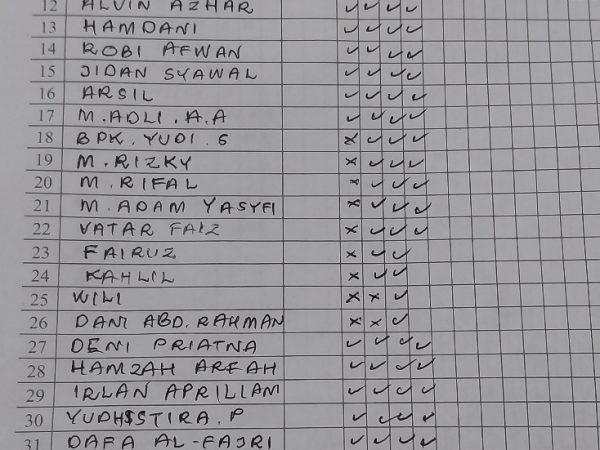 12 ALVIN AZHAR ✓ ✓ ✓ ✓
13 HAMDANI ✓ ✓ ✓ ✓
14 ROBI AFWAN ✓ ✓ ✓ ✓
15 JIDAN SYAWAL ✓ ✓ ✓ ✓
16 ARSIL ✓ ✓ ✓ ✓
17 M.ADLI.A.A ✓ ✓ ✓ ✓
18 BPK.YUDI.G x ✓ ✓ ✓
19 M.RIZKY x ✓ ✓ ✓
20 M.RIFAL x ✓ ✓ ✓
21 M.ADAM YASYFI x ✓ ✓ ✓
22 VATAR FAIZ x ✓ ✓ ✓
23 FAIRUZ x ✓ ✓
24 KAHLIL x ✓ ✓
25 WILI x x ✓
26 DANI ABD.RAHMAN x x ✓
27 DENI PRIATNA ✓ ✓ ✓ ✓
28 HAMZAH ARFAH ✓ ✓ ✓ ✓
29 IRLAN APRILLAM ✓ ✓ ✓ ✓
30 YUDHISTIRA.P ✓ ✓ ✓ ✓
31 DAFA AL-FAJRI ✓ ✓ ✓ ✓